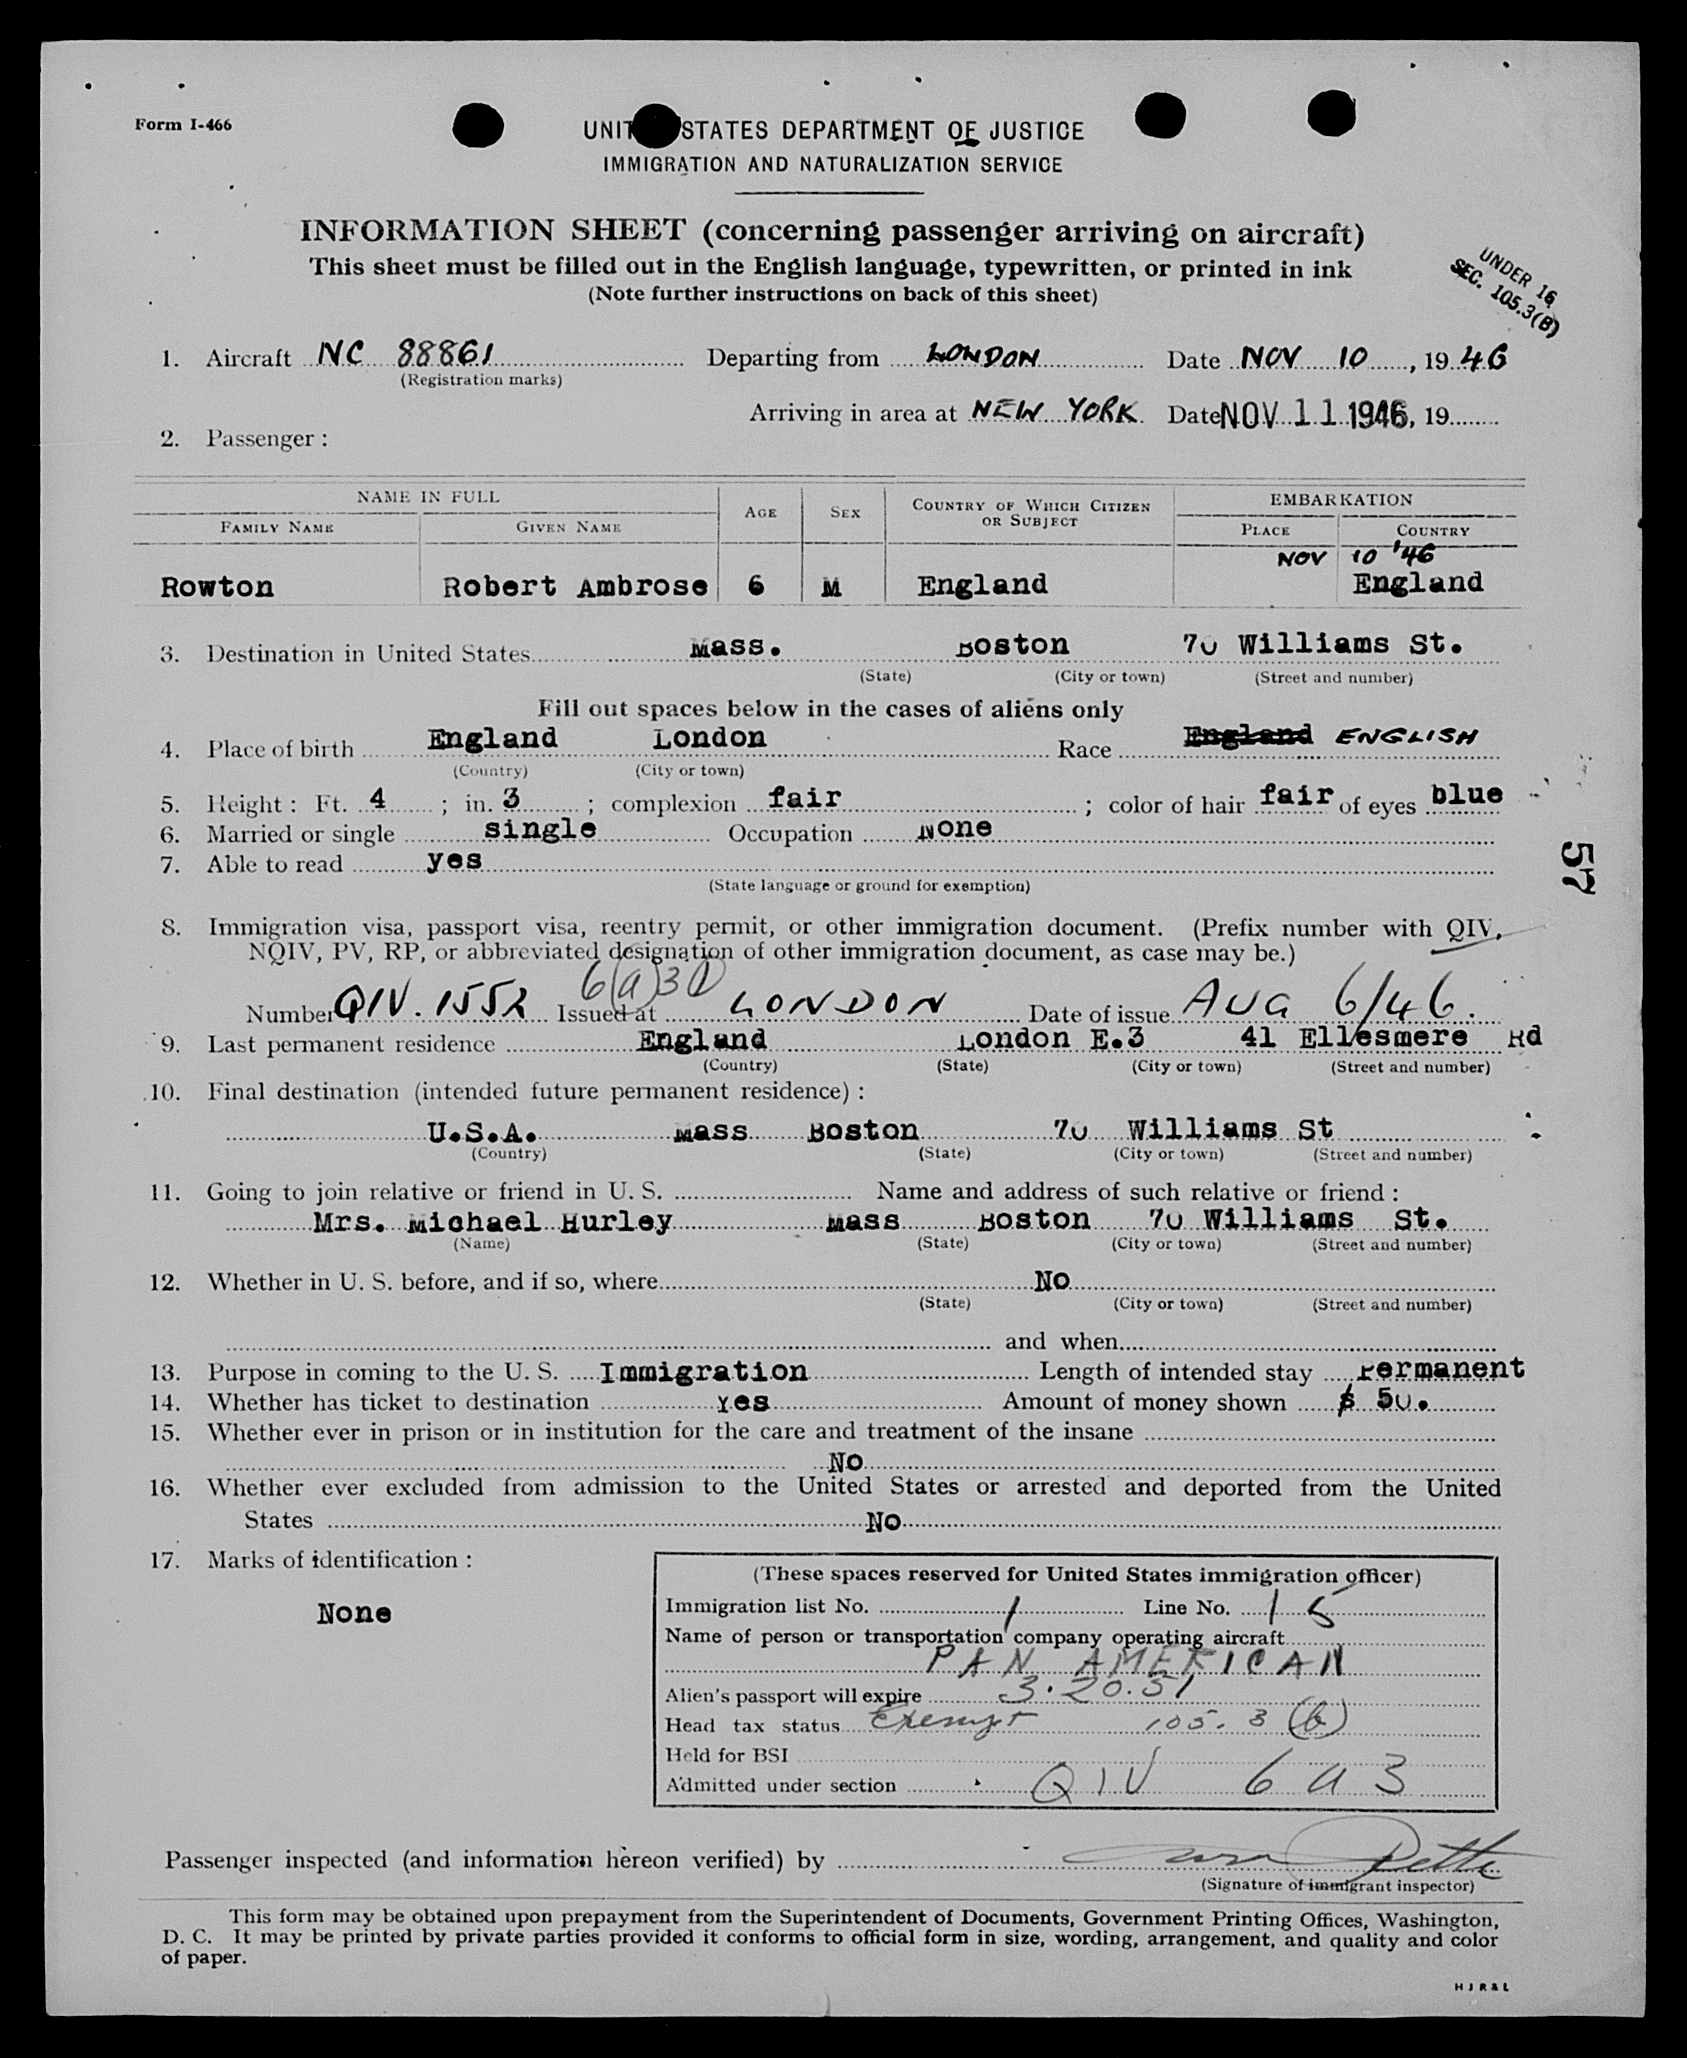 Form I-466
UNITED STATES DEPARTMENT OF JUSTICE
IMMIGRATION AND NATURALIZATION SERVICE
INFORMATION SHEET (concerning passenger arriving on aircraft)
This sheet must be filled out in the English language, typewritten, or printed in ink
(Note further instructions on back of this sheet)
UNDER 16
SEC. 105.3(B)
1. Aircraft NC 88861 Departing from LONDON Date NOV 10, 1946
(Registration marks)
Arriving in area at NEW YORK Date NOV 11 1946, 19
2. Passenger:
NAME IN FULL AGE SEX COUNTRY OF WHICH CITIZEN OR SUBJECT EMBARKATION
FAMILY NAME GIVEN NAME PLACE COUNTRY
NOV 10 '46
Rowton Robert Ambrose 6 M England England
3. Destination in United States Mass. Boston 70 Williams St.
(State) (City or town) (Street and number)
Fill out spaces below in the cases of aliens only
4. Place of birth England London Race England ENGLISH
(Country) (City or town)
5. Height: Ft. 4; in. 3; complexion fair; color of hair fair of eyes blue
6. Married or single single Occupation None
7. Able to read yes
(State language or ground for exemption)
57
8. Immigration visa, passport visa, reentry permit, or other immigration document. (Prefix number with QIV,
NQIV, PV, RP, or abbreviated designation of other immigration document, as case may be.)
6(a)3
Number QIV. 1552 Issued at LONDON Date of issue AUG 6/46.
9. Last permanent residence England London E.3 41 Ellesmere Rd
(Country) (State) (City or town) (Street and number)
10. Final destination (intended future permanent residence):
U.S.A. Mass Boston 70 Williams St
(Country) (State) (City or town) (Street and number)
11. Going to join relative or friend in U. S. Name and address of such relative or friend:
Mrs. Michael Hurley Mass Boston 70 Williams St.
(Name) (State) (City or town) (Street and number)
12. Whether in U. S. before, and if so, where No
(State) (City or town) (Street and number)
and when
13. Purpose in coming to the U. S. Immigration Length of intended stay Permanent
14. Whether has ticket to destination Yes Amount of money shown $ 50.
15. Whether ever in prison or in institution for the care and treatment of the insane
No
16. Whether ever excluded from admission to the United States or arrested and deported from the United
States No
17. Marks of identification:
None
(These spaces reserved for United States immigration officer)
Immigration list No. 1 Line No. 15
Name of person or transportation company operating aircraft
PAN AMERICAN
Alien's passport will expire 3.20.51
Head tax status Exempt 105.3(b)
Held for BSI
Admitted under section QIV 6a3
Passenger inspected (and information hereon verified) by
(Signature of immigrant inspector)
This form may be obtained upon prepayment from the Superintendent of Documents, Government Printing Offices, Washington,
D. C. It may be printed by private parties provided it conforms to official form in size, wording, arrangement, and quality and color
of paper.
H J R & L